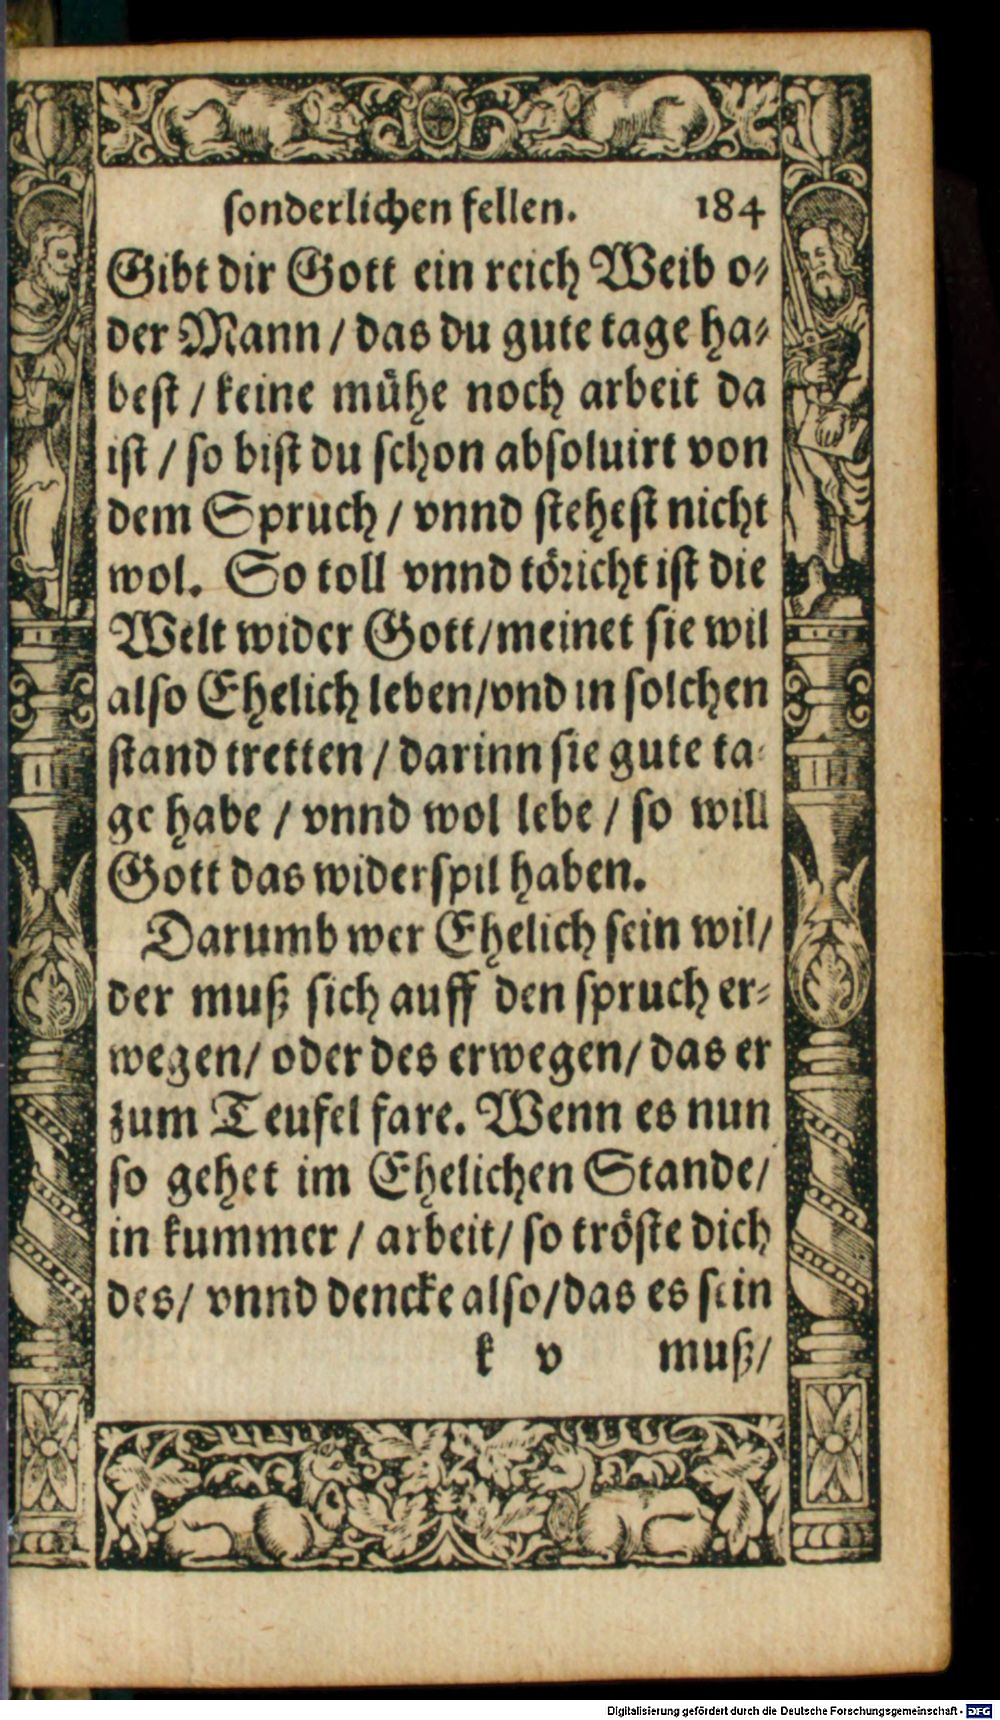 sonderlichen fellen. 184
Gibt dir Gott ein reich Weib o⸗
der Mann / das du gute tage ha⸗
best / keine mühe noch arbeit da
ist / so bist du schon absoluirt von
dem Spruch / vnnd stehest nicht
wol. So toll vnnd töricht ist die
Welt wider Gott/meinet sie wil
also Ehelich leben/vnd in solchen
stand tretten / darinn sie gute ta⸗
ge habe / vnnd wol lebe / so will
Gott das widerspil haben.
Darumb wer Ehelich sein wil/
der muß sich auff den spruch er⸗
wegen/ oder des erwegen/ das er
zum Teufel fare. Wenn es nun
so gehet im Ehelichen Stande/
in kummer / arbeit/ so tröste dich
des/ vnnd dencke also/das es sein
k v muß/
Digitalisierung gefördert durch die Deutsche Forschungsgemeinschaft - DFG